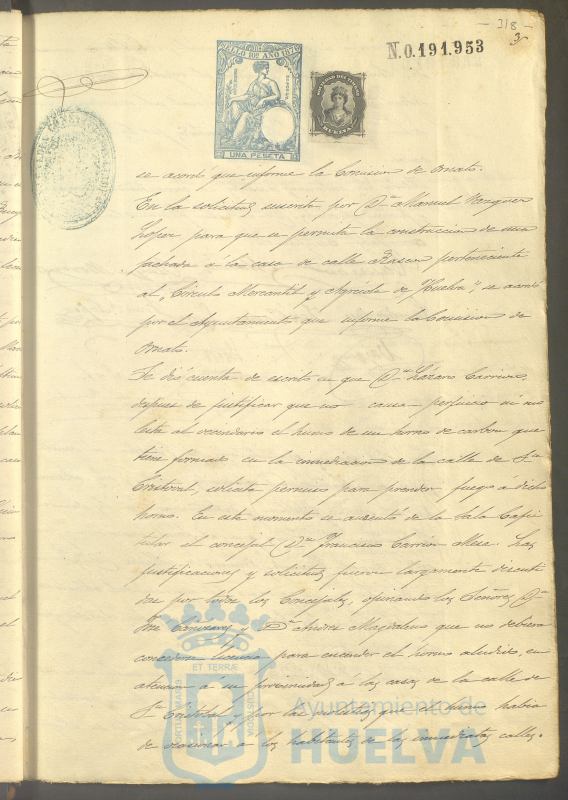 318
3
N.0.191.953
SELLO DE AÑO 1879
UNA PESETA
HUELVA
se acordó que informe la Comision de Ornato.
En la solicitud suscrita por Dn Manuel Vazquez
Lopez para que se permita la construccion de una
fachada á la casa de calle Rascon perteneciente
al "Circulo Mercantil y Agricola de Huelva", se acordó
por el Ayuntamiento que informe la Comision de
Ornato.
Se dió cuenta de escrito en que Dn Lázaro Carrion,
despues de justificar que no causa perjuicio ni mo
lestia al vecindario el humo de un horno de carbon que
tiene formado en la inmediacion de la calle de Sn
Cristoval, solicita permiso para prender fuego á dicho
horno. En este momento se ausentó de la Sala Capi
tular el concejal Dn Francisco Carrion Mesa. Las
justificaciones y solicitud fueron largamente discuti
das por todos los Concejales, opinando los Señores Dn
José y Dn Andres Magdaleno que no debiera
concederse licencia para encender el horno aludido, en
atencion á su proximidad á las casas de la calle de
Sn Cristobal y por las molestias que el humo habia
de ocasionar á los habitantes de las inmediatas calles.
ET TERRÆ
PORTUS MARIS
CUSTODIA
Ayuntamiento de
HUELVA